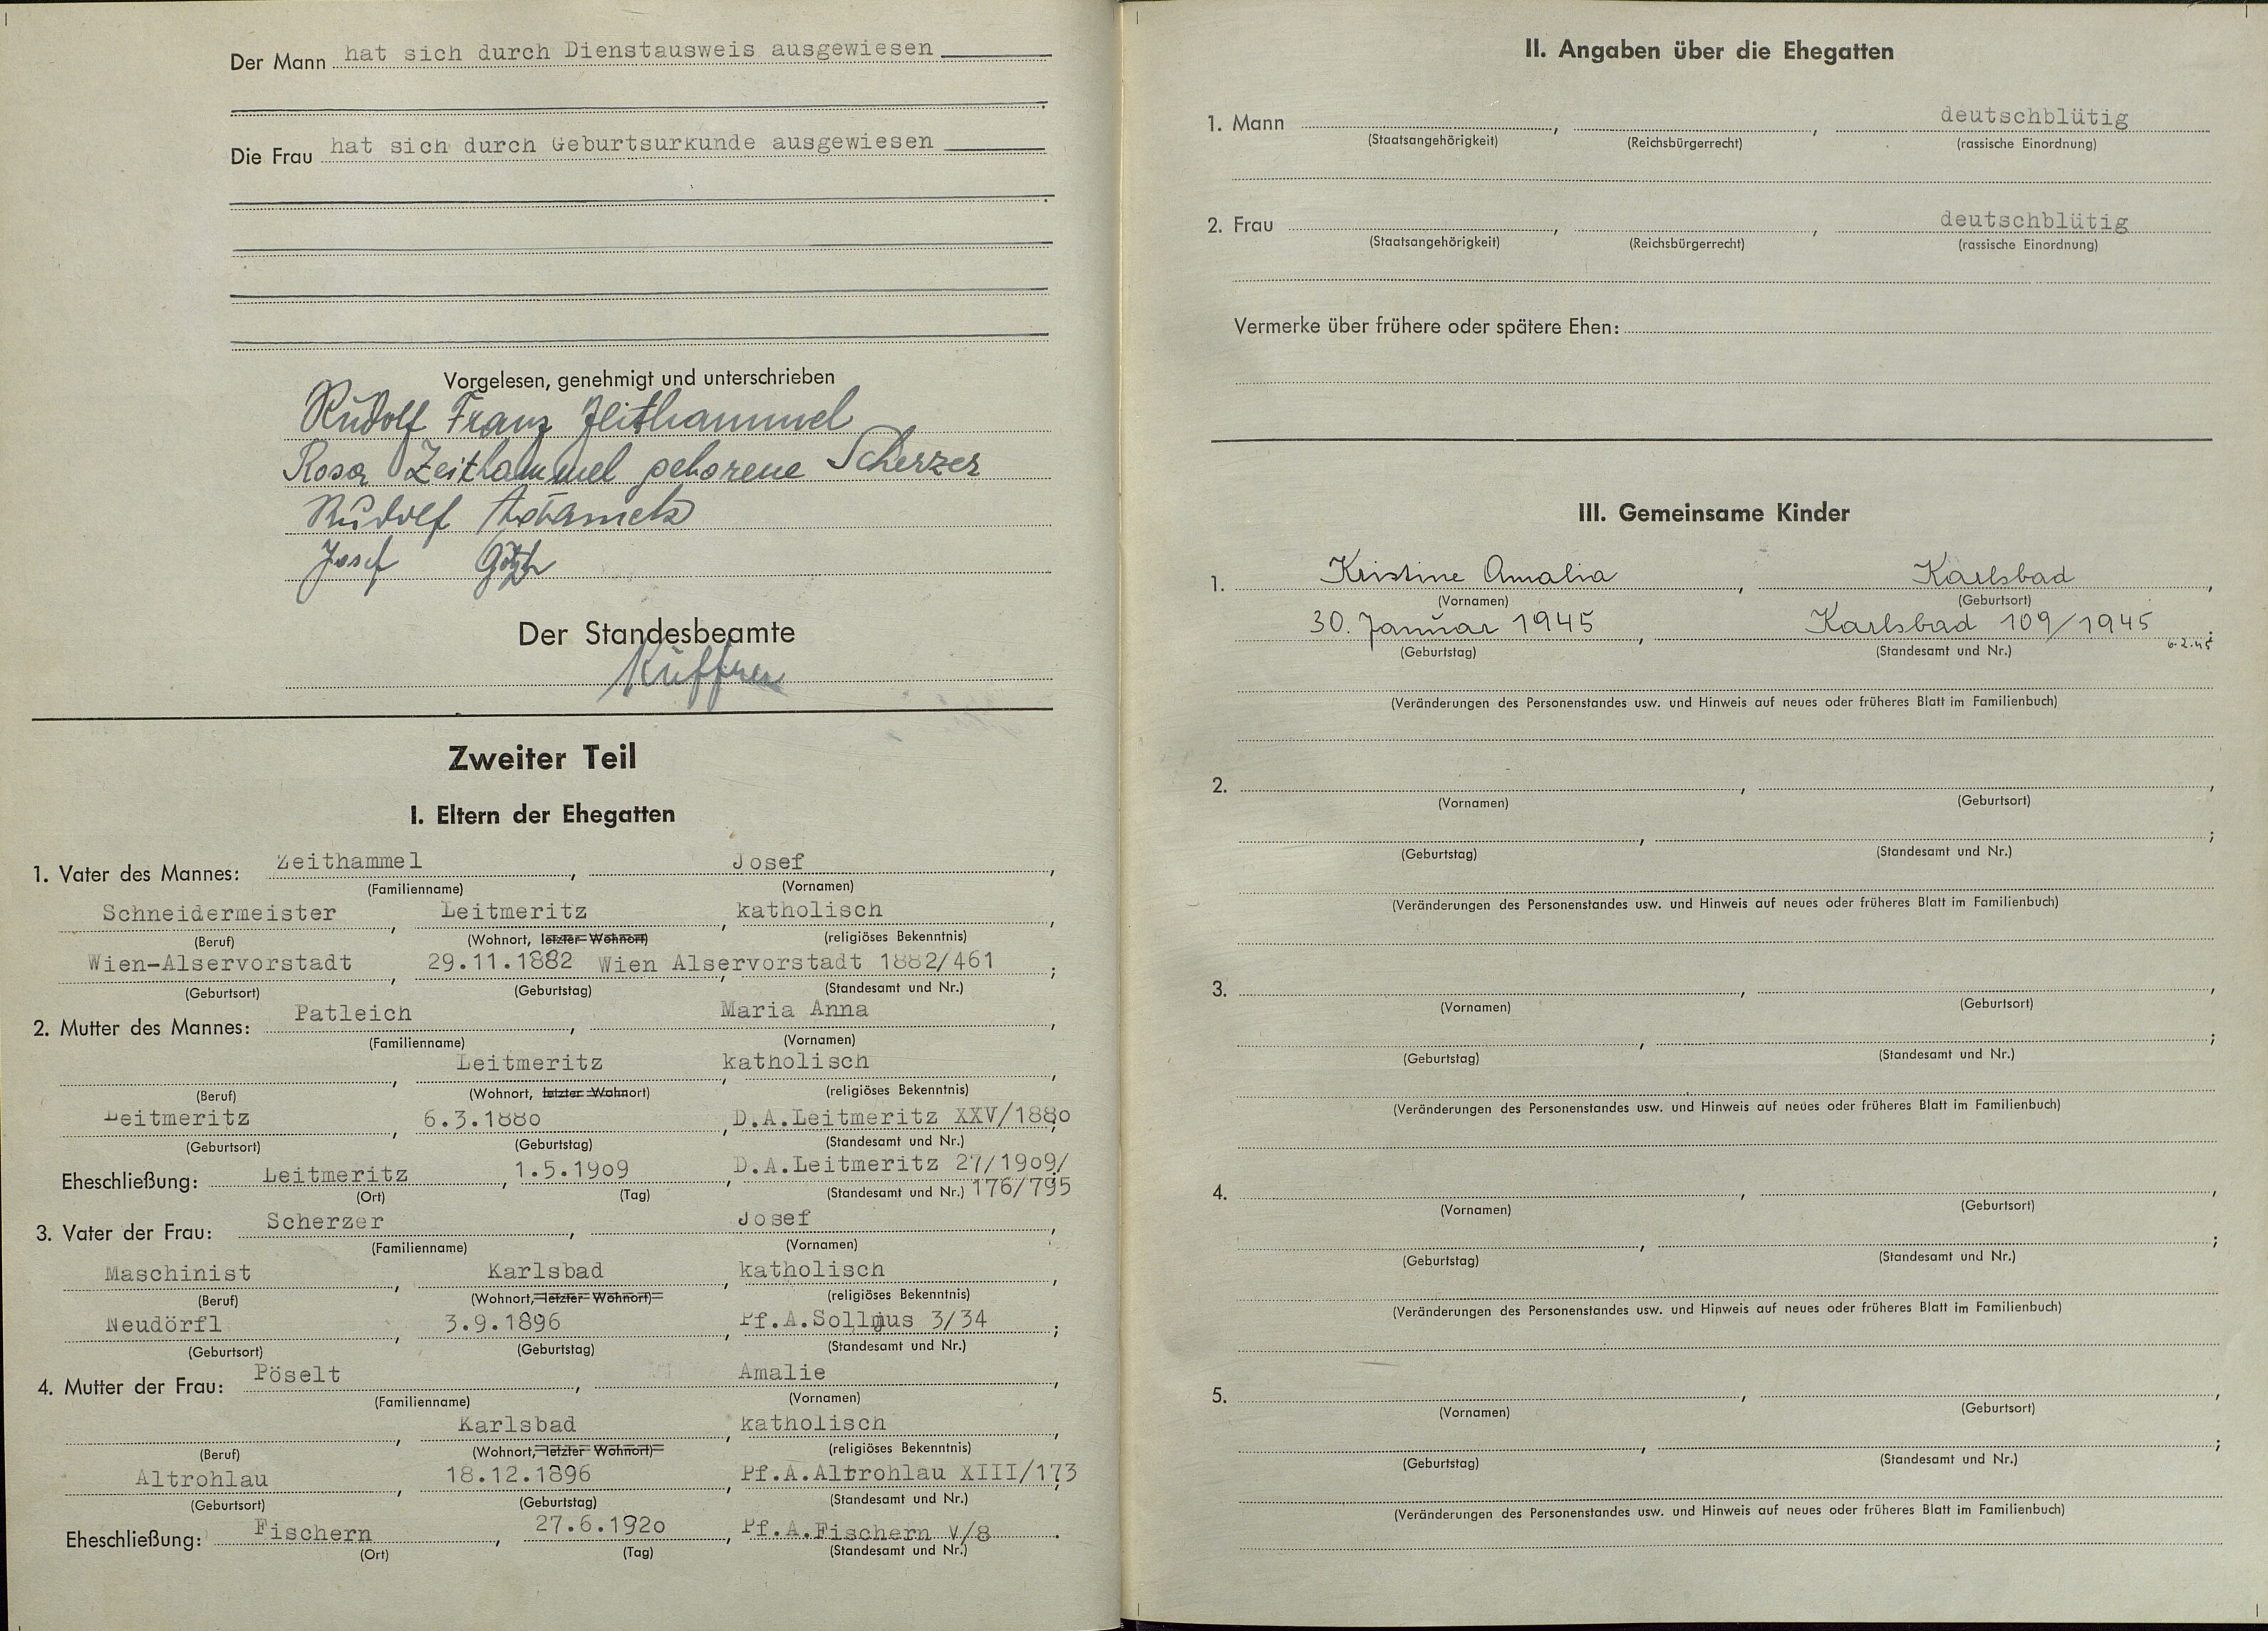 Der Mann hat sich durch Dienstausweis ausgewiesen
Die Frau hat sich durch Geburtsurkunde ausgewiesen
Vorgelesen, genehmigt und unterschrieben
Rudolf Franz Zeithammel
Rosa Zeithammel geborene Scherzer
Rudolf
Josef
Der Standesbeamte
Zweiter Teil
I. Eltern der Ehegatten
1. Vater des Mannes: Zeithammel, Josef,
(Familienname) (Vornamen)
Schneidermeister, Leitmeritz, katholisch,
(Beruf) (Wohnort, letzter Wohnort) (religiöses Bekenntnis)
Wien-Alservorstadt, 29.11.1882, Wien Alservorstadt 1882/461;
(Geburtsort) (Geburtstag) (Standesamt und Nr.)
2. Mutter des Mannes: Patleich, Maria Anna,
(Familienname) (Vornamen)
, Leitmeritz, katholisch,
(Beruf) (Wohnort, letzter Wohnort) (religiöses Bekenntnis)
Leitmeritz, 6.3.1880, D.A.Leitmeritz XXV/1880;
(Geburtsort) (Geburtstag) (Standesamt und Nr.)
Eheschließung: Leitmeritz, 1.5.1909, D.A.Leitmeritz 27/1909/
(Ort) (Tag) (Standesamt und Nr.) 176/795
3. Vater der Frau: Scherzer, Josef,
(Familienname) (Vornamen)
Maschinist, Karlsbad, katholisch,
(Beruf) (Wohnort, letzter Wohnort) (religiöses Bekenntnis)
Neudörfl, 3.9.1896, Pf.A.Sollmus 3/34;
(Geburtsort) (Geburtstag) (Standesamt und Nr.)
4. Mutter der Frau: Pöselt, Amalie,
(Familienname) (Vornamen)
, Karlsbad, katholisch,
(Beruf) (Wohnort, letzter Wohnort) (religiöses Bekenntnis)
Altrohlau, 18.12.1896, Pf.A.Altrohlau XIII/173;
(Geburtsort) (Geburtstag) (Standesamt und Nr.)
Eheschließung: Fischern, 27.6.1920, Pf.A.Fischern V/8.
(Ort) (Tag) (Standesamt und Nr.)
II. Angaben über die Ehegatten
1. Mann , , deutschblütig
(Staatsangehörigkeit) (Reichsbürgerrecht) (rassische Einordnung)
2. Frau , , deutschblütig
(Staatsangehörigkeit) (Reichsbürgerrecht) (rassische Einordnung)
Vermerke über frühere oder spätere Ehen:
III. Gemeinsame Kinder
1. Kristine Amalia, Karlsbad,
(Vornamen) (Geburtsort)
30. Januar 1945, Karlsbad 109/1945; 6.2.45
(Geburtstag) (Standesamt und Nr.)
(Veränderungen des Personenstandes usw. und Hinweis auf neues oder früheres Blatt im Familienbuch)
2. , ,
(Vornamen) (Geburtsort)
, ;
(Geburtstag) (Standesamt und Nr.)
(Veränderungen des Personenstandes usw. und Hinweis auf neues oder früheres Blatt im Familienbuch)
3. , ,
(Vornamen) (Geburtsort)
, ;
(Geburtstag) (Standesamt und Nr.)
(Veränderungen des Personenstandes usw. und Hinweis auf neues oder früheres Blatt im Familienbuch)
4. , ,
(Vornamen) (Geburtsort)
, ;
(Geburtstag) (Standesamt und Nr.)
(Veränderungen des Personenstandes usw. und Hinweis auf neues oder früheres Blatt im Familienbuch)
5. , ,
(Vornamen) (Geburtsort)
, ;
(Geburtstag) (Standesamt und Nr.)
(Veränderungen des Personenstandes usw. und Hinweis auf neues oder früheres Blatt im Familienbuch)